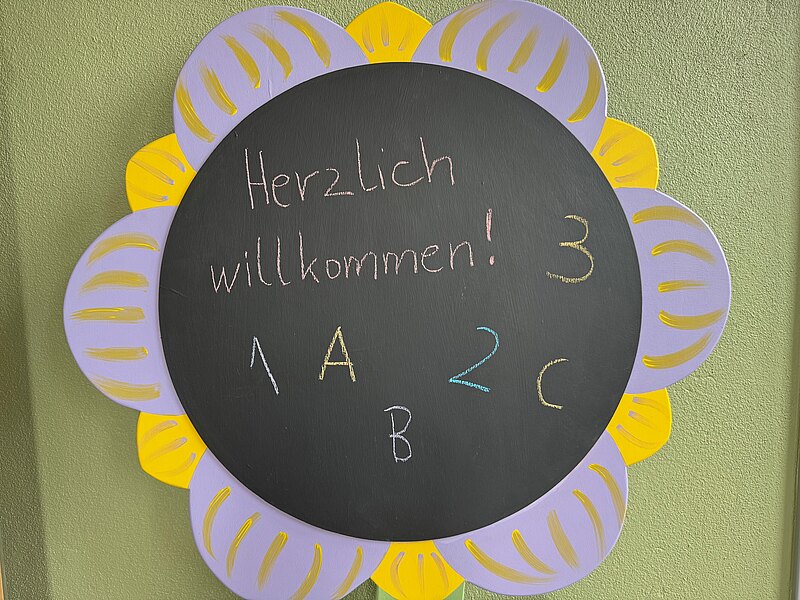 Herzlich
willkommen! 3
1 A 2 C
B